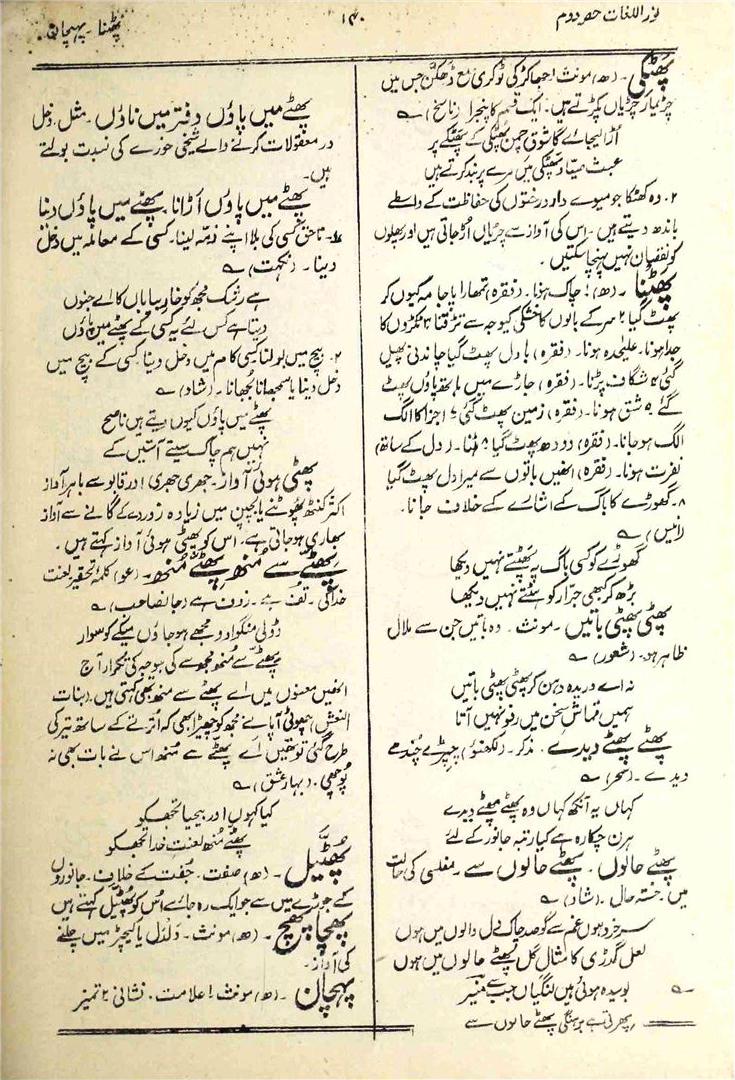 نور اللغات حصہ دوم
۱۴۰
پھٹنا ۔ پہچان
پھٹکی ۔ (ھ) مونث ۱ جھاکڑ کی ٹوکری مع ڈھکن جس میں
چڑیمار چڑیاں پکڑتے ہیں۔ ایک قسم کا پنجرا (ناسخ) ؎
اُڑا لیجائے گا شوق چمن پھٹکی کے پھٹکے پر
عبث صیاد پھٹکی میں مرے پر بند کرتے ہیں
۲۔ وہ کھٹکا جو میوے دار درختوں کی حفاظت کے واسطے
باندھ دیتے ہیں۔ اس کی آواز سے چڑیاں اُڑ جاتی ہیں اور پھلوں
کو نقصان نہیں پہنچا سکتیں۔
پھٹنا ۔ (ھ) ۱ چاک ہونا۔ (فقرہ) تمھارا پاجامہ کیوں کر
پھٹ گیا ۲ سر کے بالوں کا خشکی کیوجہ سے تڑقنا ۳ ٹکڑوں کا
جدا ہونا۔ علیحدہ ہونا۔ (فقرہ) بادل پھٹ گیا چاندنی پھیل
گئی ۴ شگاف پڑنا۔ (فقرہ) جاڑے میں ہاتھ پاؤں پھٹ
گئے ۵ شق ہونا۔ (فقرہ) زمین پھٹ گئی ۶ اجزا کا الگ
الگ ہو جانا۔ (فقرہ) دودھ پھٹ گیا ۸ اُٹنا۔ (دل کے ساتھ)
نفرت ہونا۔ (فقرہ) انھیں باتوں سے میرا دل پھٹ گیا
۸۔ گھوڑے کا باگ کے اشارے کے خلاف جانا۔
(انیس) ؎
گھوڑے کو کسی باگ پہ پھٹتے نہیں دیکھا
بڑھ کر کبھی جرّار کو ہٹتے نہیں دیکھا
پھٹی پھٹی باتیں ۔ مونث۔ وہ باتیں جن سے ملال
ظاہر ہو۔ (شعور) ؎
نہ اے دریدہ دہن کر پھٹی پھٹی باتیں
ہمیں قماش سخن میں رفو نہیں آتا
پھٹے پھٹے دیدے ۔ مذکر۔ (لکھنؤ) چپڑے چُندھے
دیدے۔ (سحر) ؎
کہاں یہ آنکھ کہاں وہ پھٹے پھٹے دیدے
ہرن چکارہ ہے کیا رتبہ جانور کے لئے
پھٹے حالوں ۔ پھٹے حالوں سے ۔ مفلسی کی حالت
میں۔ خستہ حال۔ (شاد) ؎
سرخرو ہوں غم سے گو صد چاک دل والوں میں ہوں
لعل گدڑی کا مثال گل پھٹے حالوں میں ہوں
؎ بوسیدہ ہوئی ہیں لنگیاں جب سے منیر
پھرتی ہے برہنگی پھٹے حالوں سے
پھٹے میں پاؤں دفتر میں ناؤں ۔ مثل۔ دخل
در معقولات کرنے والے شیخی خورے کی نسبت بولتے
ہیں۔
پھٹے میں پاؤں اُڑانا ۔ پھٹے میں پاؤں دینا
۱۔ ناحق کسی کی بلا اپنے ذمہ لینا۔ کسی کے معاملہ میں دخل
دینا۔ (نکہت) ؎
ہے رشک مجھ کو خار بیاباں کا اے جنوں
دیتا ہے کس لئے یہ کسی کے پھٹے میں پاؤں
۲۔ بیچ میں بولنا کسی کام میں دخل دینا کسی کے بیچ میں
دخل دینا یا سمجھانا بجھانا۔ (شاد) ؎
پھٹے میں پاؤں کیوں دیتے ہیں ناصح
نہیں ہم چاک سیتے آستیں کے
پھٹی ہوئی آواز ۔ جھری جھری اور قابو سے باہر آواز
اکثر کنٹھ پھوٹنے یا بچپن میں زیادہ زور دے کے گانے سے آواز
بھاری ہو جاتی ہے۔ اس کو پھٹی ہوئی آواز کہتے ہیں۔
پھٹے سے مُنھ ۔ پھٹے مُنھ ۔ (عو) کلمۂ تحقیر لعنت
خدا کی۔ تف ہے۔ زوف ہے (جانصاحب) ؎
ڈولی منگوا دو مجھے ہو جاؤں میکے کو سوار
پر پھٹے سے مُنھ مجھ سے کی بیوجہ کی تکرار آج
انھیں معنوں میں اے پھٹے سے منھ بھی کہتی ہیں۔ (بنات
النعش) چھوٹی آپا نے مجھ کو چھیڑا بھی کہ اُترنے کے ساتھ تیر کی
طرح گئی تو تھیں اے پھٹے سے مُنھ اس نے بات بھی نہ
پوچھی۔ (بہار عشق) ؎
کیا کہوں اور بیحیا تجھ کو
پھٹے مُنھ لعنت خدا تجھ کو
پھٹیل ۔ (ھ) صفت۔ جُفت کے خلاف۔ جانوروں
کے جوڑے میں سے جو ایک رہ جائے اُس کو پھٹیل کہتے ہیں
پھچا پھچ ۔ (ھ) مونث۔ دَلدَل یا کیچڑ میں چلنے
کی آواز۔
پہچان ۔ (ھ) مونث ۱ علامت۔ نشانی ۲ تمیز